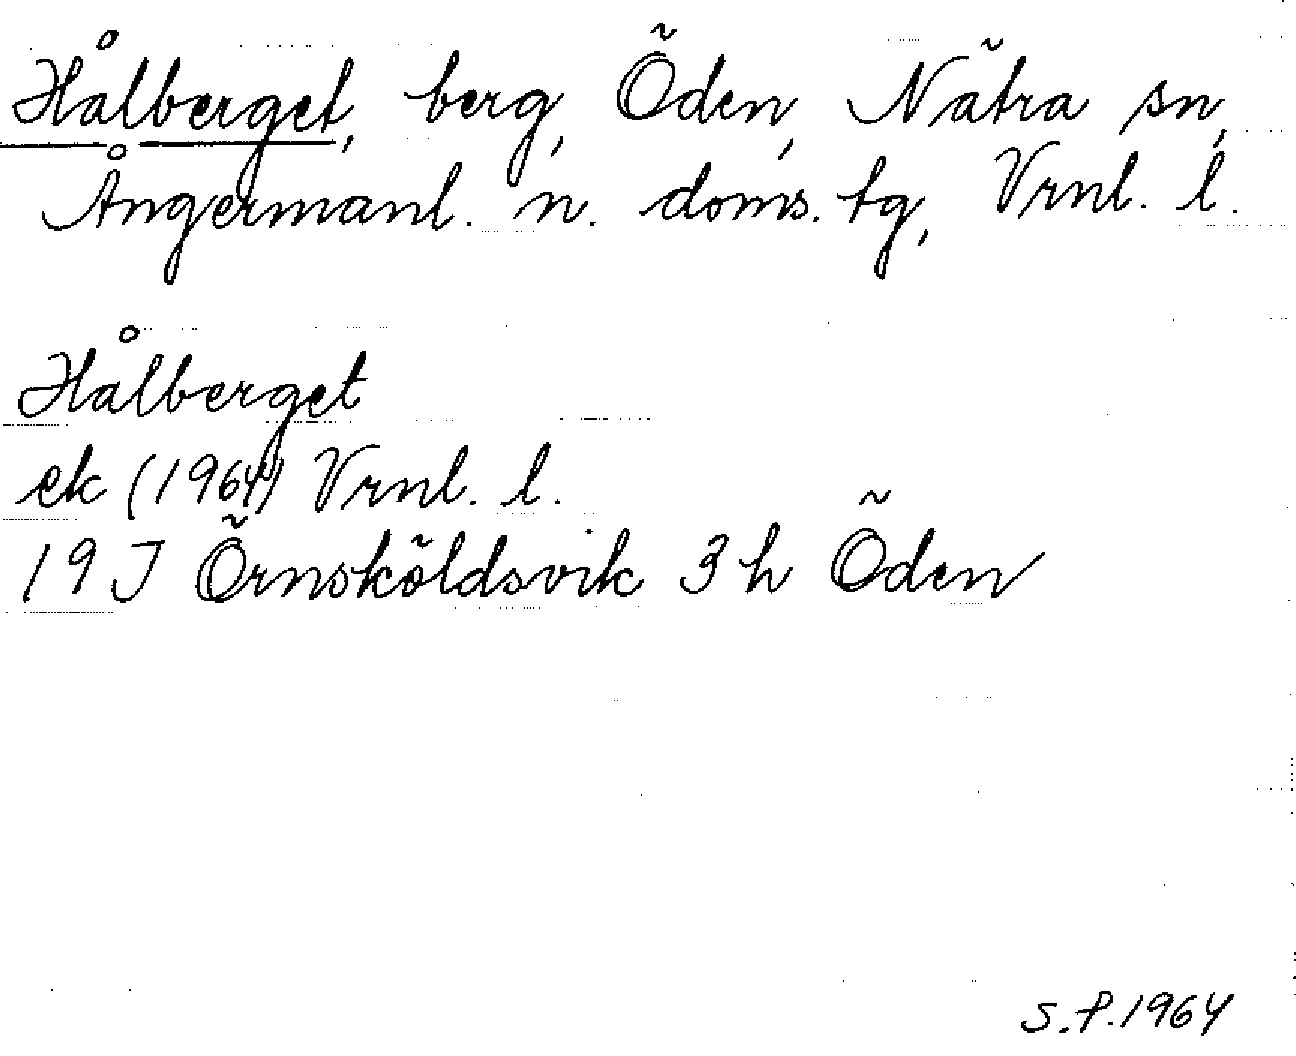 Hålberget, berg, Öden, Nätra sn,
Ångermanl. n. doms. tg, Vrnl. l.
Hålberget
ek (1964) Vrnl. l.
19 J Örnsköldsvik 3 h Öden
S.P. 1964